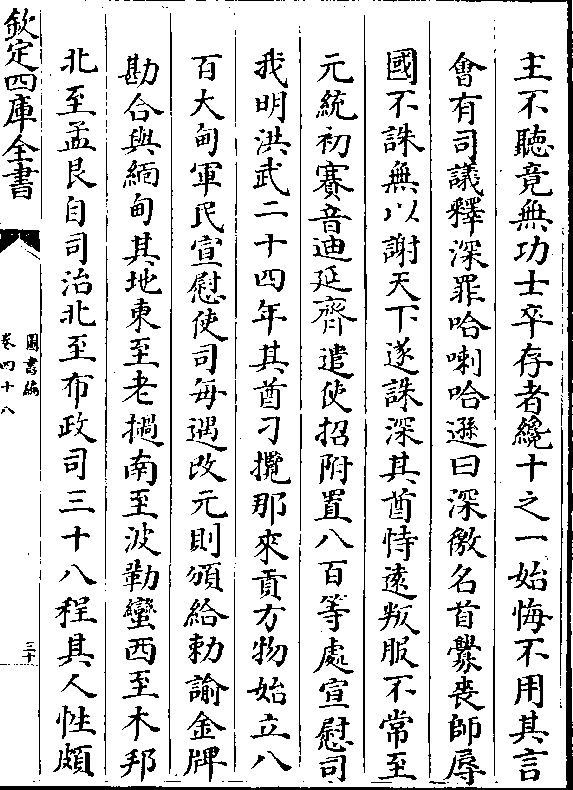 主不聽竟無功士卒存者纔十之一始悔不用其言
會有司議釋深罪哈喇哈遜曰深徼名首釁喪師辱
國不誅無以謝天下遂誅深其酋恃遠叛服不常至
元統初賽音迪延齊遣使招附置八百等處宣慰司
我明洪武二十四年其酋刁攬那來貢方物始立八
百大甸軍民宣慰使司每遇改元則頒給勅諭金牌
勘合與緬甸其地東至老撾南至波勒蠻西至木邦
北至孟艮自司治北至布政司三十八程其人性頗
欽定四庫全書
圖書編
卷四十八
三十